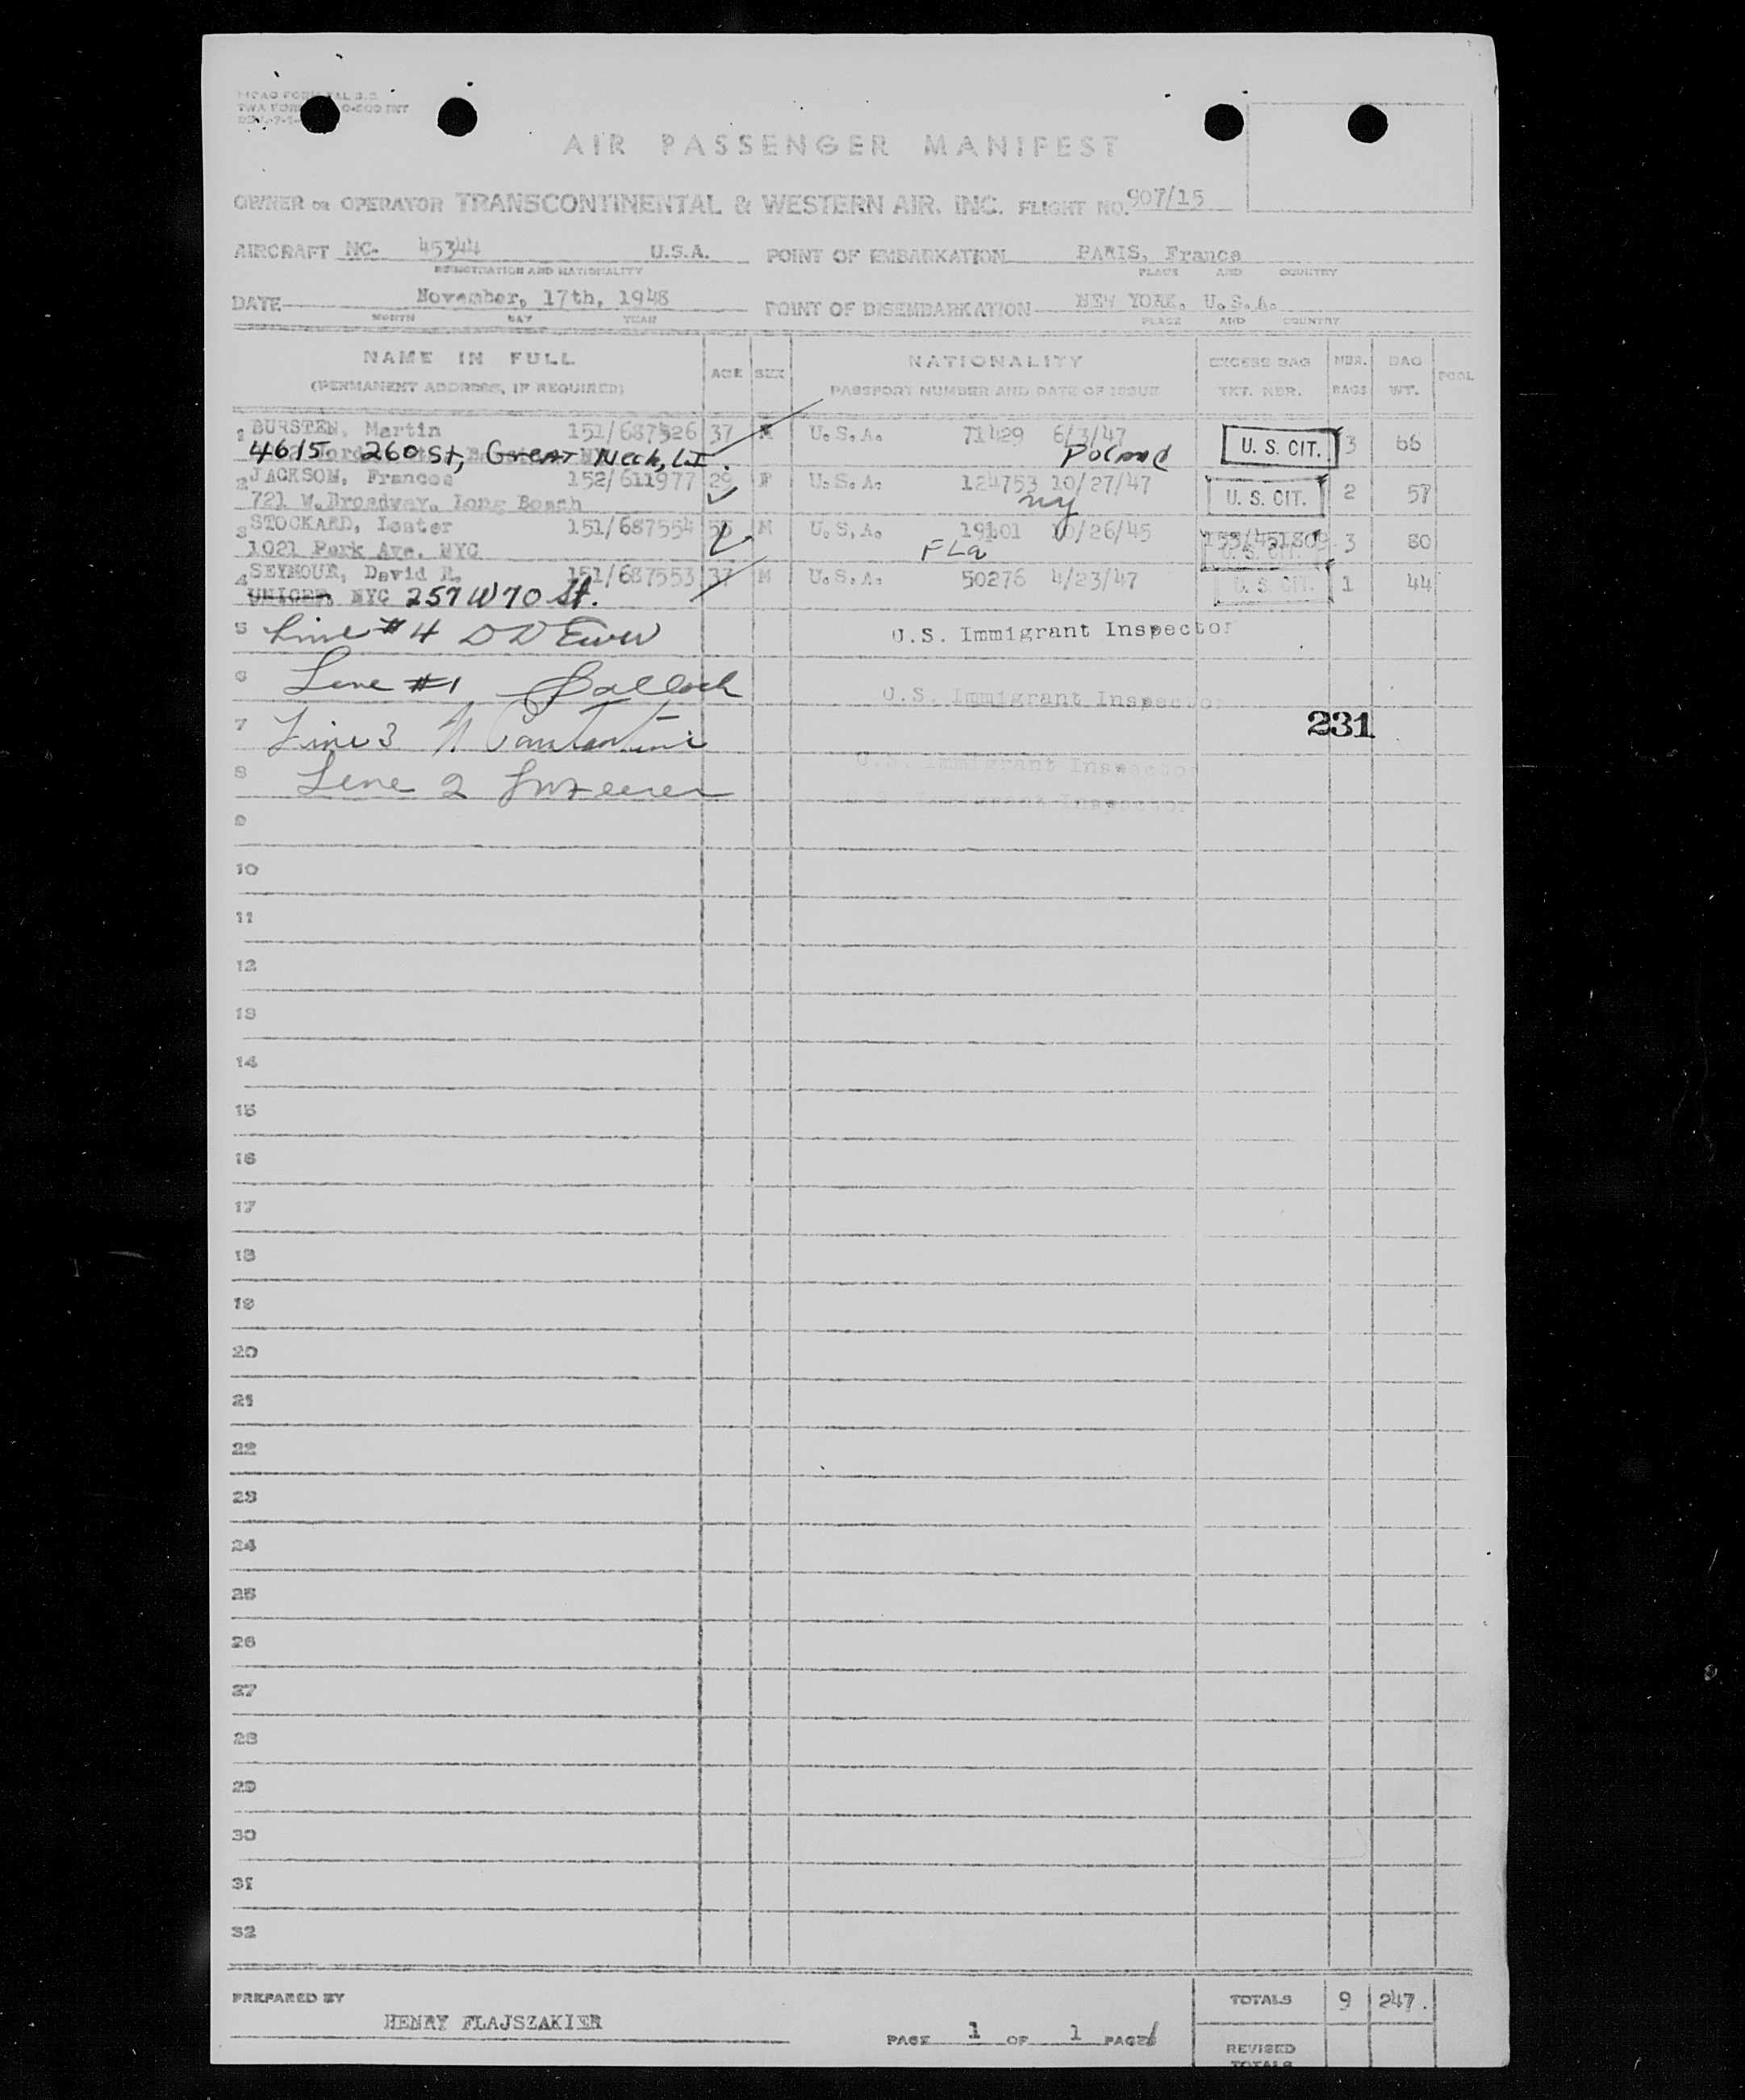 AIR PASSENGER MANIFEST
OWNER OR OPERATOR TRANSCONTINENTAL & WESTERN AIR, INC. FLIGHT NO. 907/15
AIRCRAFT NC- 45344 U.S.A. POINT OF EMBARKATION PARIS, France
REGISTRATION AND NATIONALITY PLACE AND COUNTRY
DATE November, 17th, 1948 POINT OF DISEMBARKATION NEW YORK, U.S.A.
MONTH DAY YEAR PLACE AND COUNTRY
NAME IN FULL AGE SEX NATIONALITY EXCESS BAG NBR. BAG POOL
(PERMANENT ADDRESS, IF REQUIRED) PASSPORT NUMBER AND DATE OF ISSUE TKT. NBR. BAGS WT.
1 BURSTEN, Martin 151/687526 37 M U.S.A. 71429 6/3/47 U. S. CIT. 3 66
4615 260 St, Great Neck, LI. Poland
2 JACKSON, Frances 152/611977 29 F U.S.A. 124753 10/27/47 U. S. CIT. 2 57
721 W. Broadway, Long Beach NY
3 STOCKARD, Lester 151/687554 55 M U.S.A. 19101 10/26/45 153/451809 U. S. CIT. 3 80
1021 Park Ave. NYC FLa
4 SEYMOUR, David R. 151/687553 37 M U.S.A. 50276 4/23/47 U. S. CIT. 1 44
UNICEF, NYC 257 W 70 St.
5 Line #4 U.S. Immigrant Inspector
6 Line #1 U.S. Immigrant Inspector
231
7 Line 3
U.S. Immigrant Inspector
8 Line 2 U.S. Immigrant Inspector
9
10
11
12
13
14
15
16
17
18
19
20
21
22
23
24
25
26
27
28
29
30
31
32
PREPARED BY TOTALS 9 247.
HENRY FLAJSZAKIER
PAGE 1 OF 1 PAGES
REVISED
TOTALS